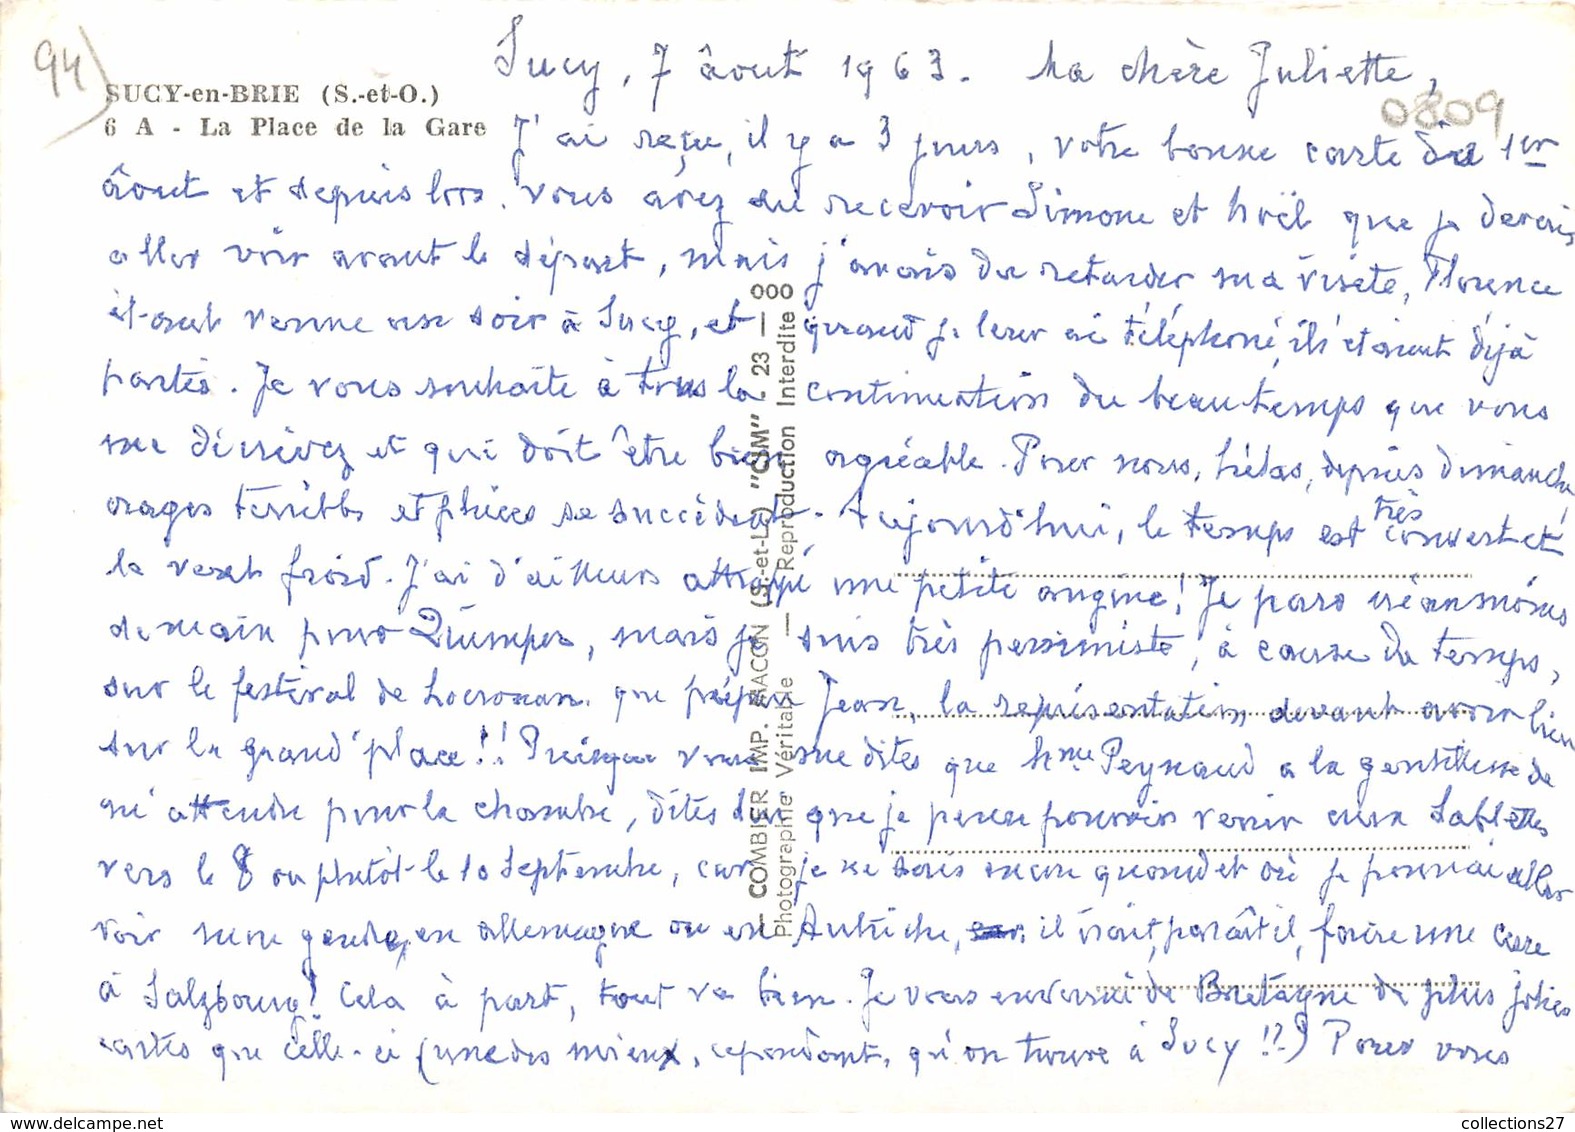 94
SUCY-en-BRIE (S.-et-O.)
6 A - La Place de la Gare
0809
Sucy, 7 âout 1963. Ma chère Juliette,
J'ai reçu, il y a 3 jours, votre bonne carte du 1er
âout et depuis lors, vous avez du recevoir Simone et Noël que je devais
aller voir avant le départ, mais j'avais du retarder ma visite, Florence
étant venue un soir à Sucy, et quand je leur ai téléphoné, ils étaient déjà
partis. Je vous souhaite à tous la continuation du beau temps que vous
me décrivez et qui doit être bien agréable. Pour nous, hélas, depuis dimanche,
orages terribles et pluies se succèdent. Aujourd'hui, le temps est très couvert et
le vent froid. J'ai d'ailleurs attrapé une petite angine! Je pars néanmoins
demain pour Quimper, mais je suis très pessimiste, à cause du temps,
sur le festival de Locronan que prépare Jean, la représentation devant avoir lieu
sur la grand'place!! Puisque vous me dites que Mme Peynaud a la gentillesse de
m'attendre pour la chambre, dites lui que je pense pouvoir venir aux Sablettes
vers le 8 ou plutôt le 10 septembre, car je ne sais encore quand et où je pourrai aller
voir mon gendre, en allemagne ou en Autriche, il irait, paraît il, faire une cure
à Salzbourg! Cela à part, tout va bien. Je vous enverrai de Bretagne de plus jolies
cartes que celle-ci (une des mieux, cependant, qu'on trouve à Sucy!!) Pour vous
— COMBIER IMP. MACON (S.-et-L.) "CIM" - 23 — 000
Photographie Véritable — Reproduction Interdite
collections27